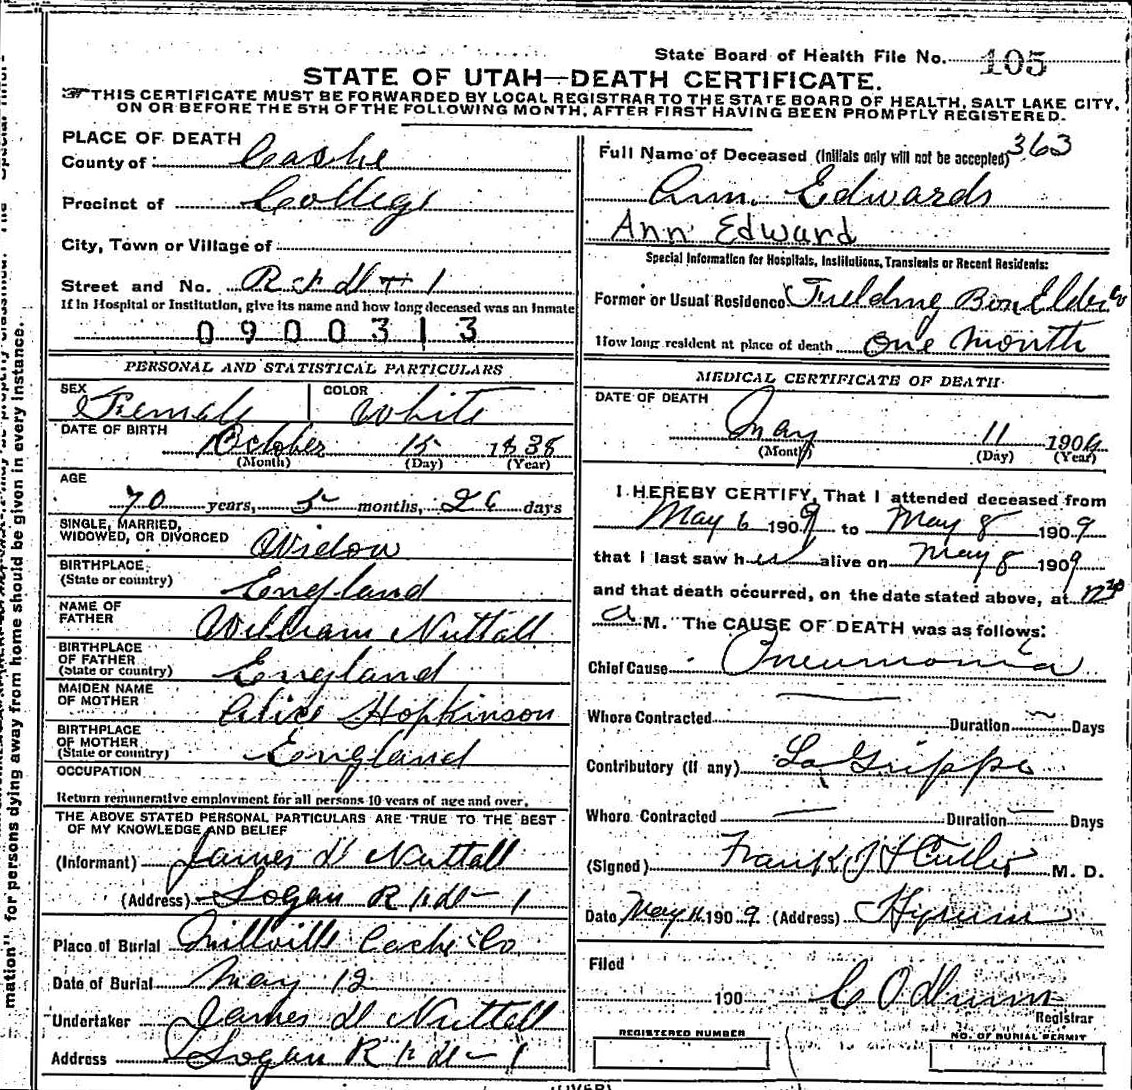 State Board of Health File No. 105
STATE OF UTAH—DEATH CERTIFICATE.
THIS CERTIFICATE MUST BE FORWARDED BY LOCAL REGISTRAR TO THE STATE BOARD OF HEALTH, SALT LAKE CITY,
ON OR BEFORE THE 5TH OF THE FOLLOWING MONTH, AFTER FIRST HAVING BEEN PROMPTLY REGISTERED.
PLACE OF DEATH
County of Cache
Precinct of College
City, Town or Village of
Street and No. R F D # 1
If in Hospital or Institution, give its name and how long deceased was an Inmate
0900313
PERSONAL AND STATISTICAL PARTICULARS
SEX Female COLOR White
DATE OF BIRTH October 15 1838
(Month) (Day) (Year)
AGE
70 years, 5 months, 26 days
SINGLE, MARRIED,
WIDOWED, OR DIVORCED Widow
BIRTHPLACE
(State or country) England
NAME OF
FATHER William Nuttall
BIRTHPLACE
OF FATHER
(State or country) England
MAIDEN NAME
OF MOTHER Alice Hopkinson
BIRTHPLACE
OF MOTHER
(State or country) England
OCCUPATION
Return remunerative employment for all persons 10 years of age and over.
THE ABOVE STATED PERSONAL PARTICULARS ARE TRUE TO THE BEST
OF MY KNOWLEDGE AND BELIEF
(Informant) James H Nuttall
(Address) Logan R F D - 1
Place of Burial Millville Cache Co
Date of Burial May 12
Undertaker James H Nuttall
Address Logan R F D - 1
Full Name of Deceased (Initials only will not be accepted) 363
Ann Edwards
Ann Edward
Special Information for Hospitals, Institutions, Transients or Recent Residents:
Former or Usual Residence Fielding Box Elder Co
How long resident at place of death one month
MEDICAL CERTIFICATE OF DEATH
DATE OF DEATH
May 11 1909
(Month) (Day) (Year)
I HEREBY CERTIFY, That I attended deceased from
May 6 1909 to May 8 1909
that I last saw her alive on May 8 1909
and that death occurred, on the date stated above, at 12 30
a M. The CAUSE OF DEATH was as follows:
Chief Cause Pneumonia
Where Contracted Duration Days
Contributory (if any) La Grippe
Where Contracted Duration Days
(Signed) Frank M. D.
Date May 11 1909 (Address) Hyrum
Filed
190 C O Dunn
Registrar
REGISTERED NUMBER
NO. OF BURIAL PERMIT
(OVER)
mation" for persons dying away from home should be given in every instance.